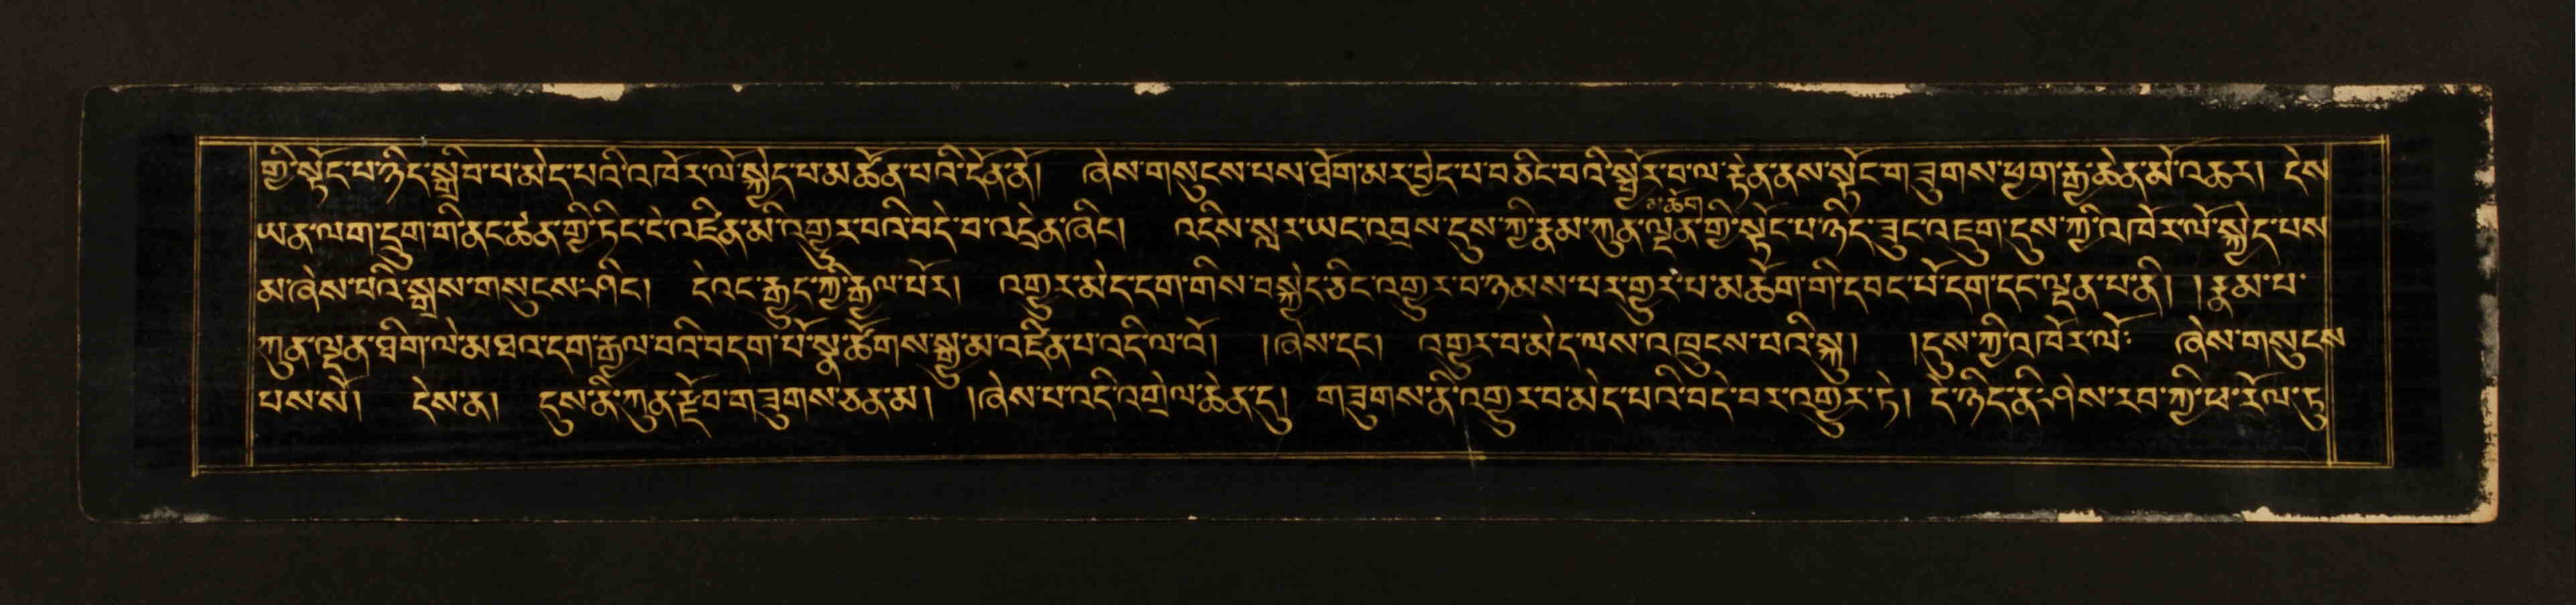 གྱི་སྟོང་པ་ཉིད་སྒྲིབ་པ་མེད་པའི་འཁོར་ལོ་སྐྱེད་པ་མཚོན་པའི་དོན་ནོ།  ཞེས་གསུངས་པས་ཐོག་མར་བྱེད་པ་བཅིང་བའི་སྦྱོར་བ་ལ་རྟེན་ནས་སྟོང་གཟུགས་ཕྱག་རྒྱ་ཆེན་མོ་འཆར། དེས
མ་ཆོག
ཡན་ལག་དྲུག་གི་ནང་ཚན་གྱི་ཏིང་ངེ་འཛིན་མི་འགྱུར་བའི་བདེ་བ་འདྲེན་ཞིང།  འདིས་སླར་ཡང་འབྲས་དུས་ཀྱི་རྣམ་ཀུན་ལྡན་གྱི་སྟོང་པ་ཉིད་ཟུང་འཇུག་དུས་ཀྱི་འཁོར་ལོ་སྐྱེད་པས
མ་ཞེས་པའི་སྒྲས་གསུངས་ཤིང།  དེ་འང་རྒྱུད་ཀྱི་རྒྱལ་པོར།  འགྱུར་མེད་དག་གིས་བསྐྱེད་ཅིང་འགྱུར་བ་ཉམས་པར་གྱུར་པ་མཆོག་གི་དབང་པོ་དག་དང་ལྡན་པ་ནི། །རྣམ་པ་
ཀུན་ལྡན་ཐིག་ལེ་མཐའ་དག་རྒྱལ་བའི་བདག་པོ་སྣ་ཚོགས་སྒྱུ་མ་འཛིན་པ་འདི་ལ་བོ།  །ཞེས་དང།  འགྱུར་བ་མེད་ལས་འཁྲུངས་པའི་སྐུ།  །དུས་ཀྱི་འཁོར་ལོ་  ཞེས་གསུངས
པས་སོ།  དེས་ན།  དུས་ནི་ཀུན་རྫོབ་གཟུགས་ཅན་མ།  །ཞེས་པ་འདི་འགྲེལ་ཆེན་དུ།  གཟུགས་ནི་འགྱུར་བ་མེད་པའི་བདེ་བར་འགྱུར་ཏེ། དེ་ཉིད་ནི་ཤེས་རབ་ཀྱི་ཕ་རོལ་ཏུ